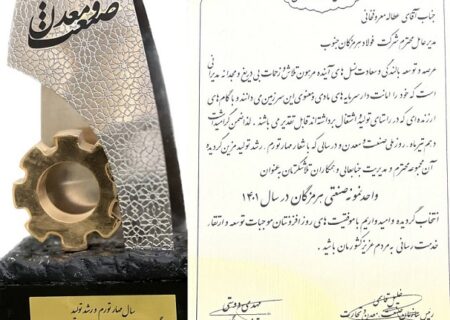 صنعت و معدن
سال مهار تورم و رشد تولید
جناب آقای عطااله معروفخانی
مدیرعامل محترم شرکت فولاد هرمزگان جنوب
عرصه و توسعه بالندگی و سعادت نسل های آینده مرهون تلاش و زحمات بی دریغ و مجدانه مدیرانی
است که خود را امانت دار سرمایه های مادی و معنوی این سرزمین می دانند و با گام های
ارزنده ای که در راستای تولید و اشتغال برداشته اند قابل تقدیر می باشند. لذا ضمن گرامیداشت
دهم تیرماه، روز ملی صنعت و معدن و در سالی که با شعار مهار تورم، رشد تولید مزین گردیده
آن مجموعه محترم و مدیریت جنابعالی و همکاران تلاشگرتان به عنوان
واحد نمونه صنعتی هرمزگان در سال ۱۴۰۱
انتخاب گردیده و امید داریم با موفقیت های روز افزونتان موجبات توسعه و ارتقاء
خدمت رسانی به مردم عزیز کشورمان باشید.
مهدی دوستی
خلیل قاسمی
رئیس سازمان صنعت، معدن و تجارت